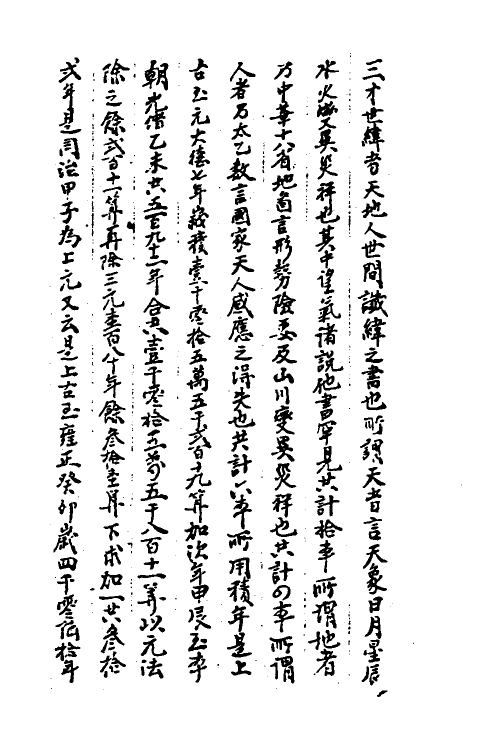 三才世緯者天地人世間讖緯之書也所謂天者言天象日月星辰
水火災異災祥也其中望氣諸說他書罕見共計拾本所謂地者
乃中華十八省地卤言形勢險惡及山川變異災祥也共計四本所謂
人者乃太乙数言國家天人感應之得失也共計六本所用積年是上
古至元大德七年歲積壹千零拾五萬五千弍百十九算加次年甲辰至本
朝光緒乙未共五百九十二年合共壹千零拾五萬五千八百十一算以元法
除之餘弍百十一算再除三元壹百八十年餘叁拾壹算下求加一共叁拾
弍年是同治甲子為上元又云是上古至雍正癸卯歲四千零伍拾年